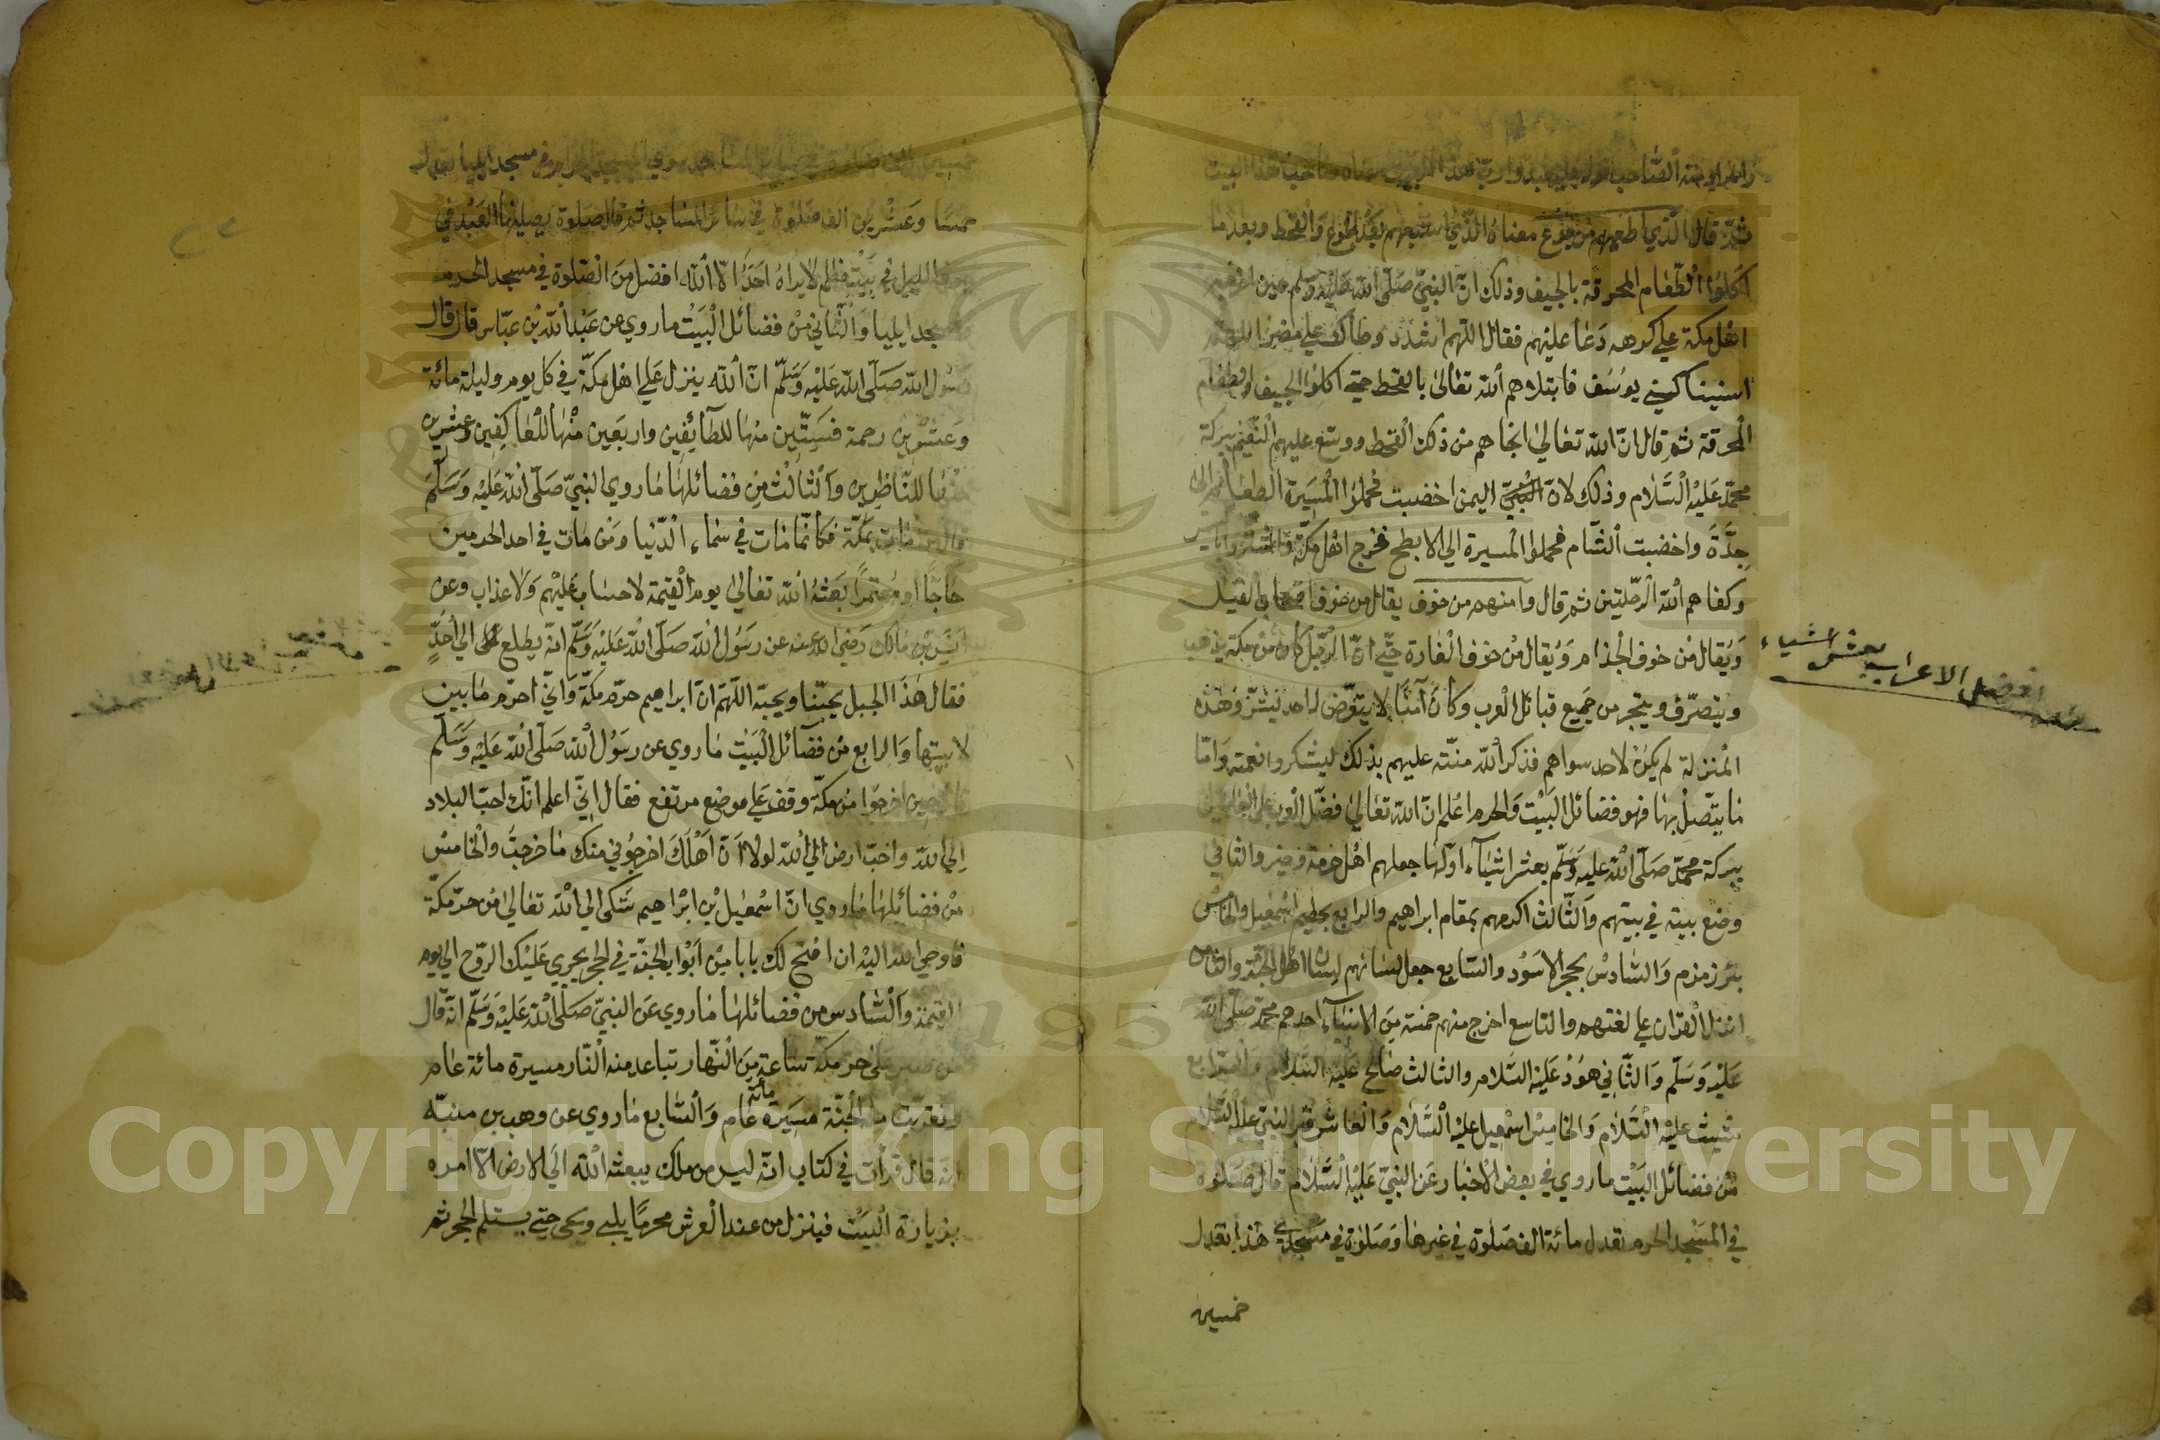 ثم قال الذي اطعمهم من جوع معناه الذي اشبعهم بعد الجوع والقحط وبعد ما
اكلوا الطعام المحرقة بالجيف وذلك ان النبي صلى الله عليه وسلم حين
اهل مكة علي كرهه دعا عليهم فقال اللهم اشدد وطأتك علي مضر اللهم
سنينا كسني يوسف فابتلاهم الله تعالى بالقحط حتي اكلوا الجيف والطعام
المحرقة ثم قال ان الله تعالى انجاهم من ذلك القحط ووسع عليهم النعيم ببركة
محمد عليه السلام وذلك لان اليمن اخضبت فحملوا المسيرة الطعام الى
جدة واخضبت الشام فحملوا المسيرة الي الابطح فخرج اهل مكة
وكفاهم الله الرحلتين ثم قال وامنهم من خوف يقال من خوف اصحاب الفيل
ويقال من خوف الجذام ويقال من خوف الغارة حتي ان الرجل كان من مكة
ويتصرف ويتجر من جميع قبائل العرب وكان آمنا لا يتعرض له احد بشر وهذه
المنزلة لم يكن لاحد سواهم فذكر الله منته عليهم بذلك ليشكروا نعمته واما
ما يتصل بها فهو فضائل البيت والحرم اعلم ان الله تعالى فضل العرب علي
ببركة محمد صلى الله عليه وسلم بعشر اشياء اولها جعلهم اهل حرمه والثاني
وضع بيته في بيتهم والثالث اكرمهم بمقام ابراهيم والرابع بحطيم اسمعيل والخامس
بئر زمزم والسادس بحجر الاسود والسابع جعل لسانهم لسان اهل الجنة والثامن
انزل القران علي لغتهم والتاسع اخرج منهم خمسة من الانبياء احدهم محمد صلى الله
عليه وسلم والثاني هود عليه السلام والثالث صالح عليه السلام والرابع
شيث عليه السلام والخامس اسمعيل عليه السلام والعاشر قبر النبي عليه السلام
من فضائل البيت ما روي في بعض الاخبار عن النبي عليه السلام قال صلوة
في المسجد الحرم تعدل مائة الف صلوة في غيرها وصلوة في مسجدي هذا تعدل
خمسين
الاعراب بعشر اشياء
خمسا وعشرين الف صلوة في سائر المساجد ثم قال الصلوة يصليها العبد في
جوف الليل في بيت مظلم لا يراه احدا الا الله افضل من الصلوة في مسجد الحرم
ومسجد ايليا والثاني من فضائل البيت ما روي عن عبد الله بن عباس قال قال
رسول الله صلى الله عليه وسلم ان الله ينزل علي اهل مكة في كل يوم وليلة مائة
وعشرين رحمة فستين منها للطائفين واربعين منها للعاكفين وعشرين
منها للناظرين والثالث من فضائلها ما روي النبي صلى الله عليه وسلم
قال من مات بمكة فكانما مات في سماء الدنيا ومن مات في احد الحرمين
حاجا او معتمرا بعثه الله تعالى يوم القيمة لا حساب عليهم ولا عذاب وعن
انس بن مالك رضي الله عنه عن رسول الله صلى الله عليه وسلم انه يطلع الي احد
فقال هذا الجبل يحبنا ويحبه اللهم ان ابراهيم حرم مكة واني احرم ما بين
لابيتها والرابع من فضائل البيت ما روي عن رسول الله صلى الله عليه وسلم
حين اخرجوا من مكة وقف علي موضع مرتفع فقال اني اعلم انك احب البلاد
الي الله واحب ارض الي الله لولا ان اهلك اخرجوني منك ما خرجت والخامس
من فضائلها ما روي ان اسمعيل بن ابراهيم شكى الي الله تعالى من حر مكة
فاوحى الله اليه ان افتح لك بابا من ابواب الجنة في الحجر يجري عليك الروح الي يوم
القيمة والسادس من فضائلها ما روي عن النبي صلى الله عليه وسلم انه قال
من صبر على حر مكة ساعة من النهار تباعد منه النار مسيرة مائة عام
وتقربت منه الجنة مسيرة مائة عام والسابع ما روي عن وهب بن منبه
انه قال قرأت في كتاب انه ليس من ملك يبعثه الله الي الارض الا امره
بزيارة البيت فينزل من عند العرش محرما يلبي ويجي حتي يستلم الحجر ثم
Copyright © King Saud University
1957